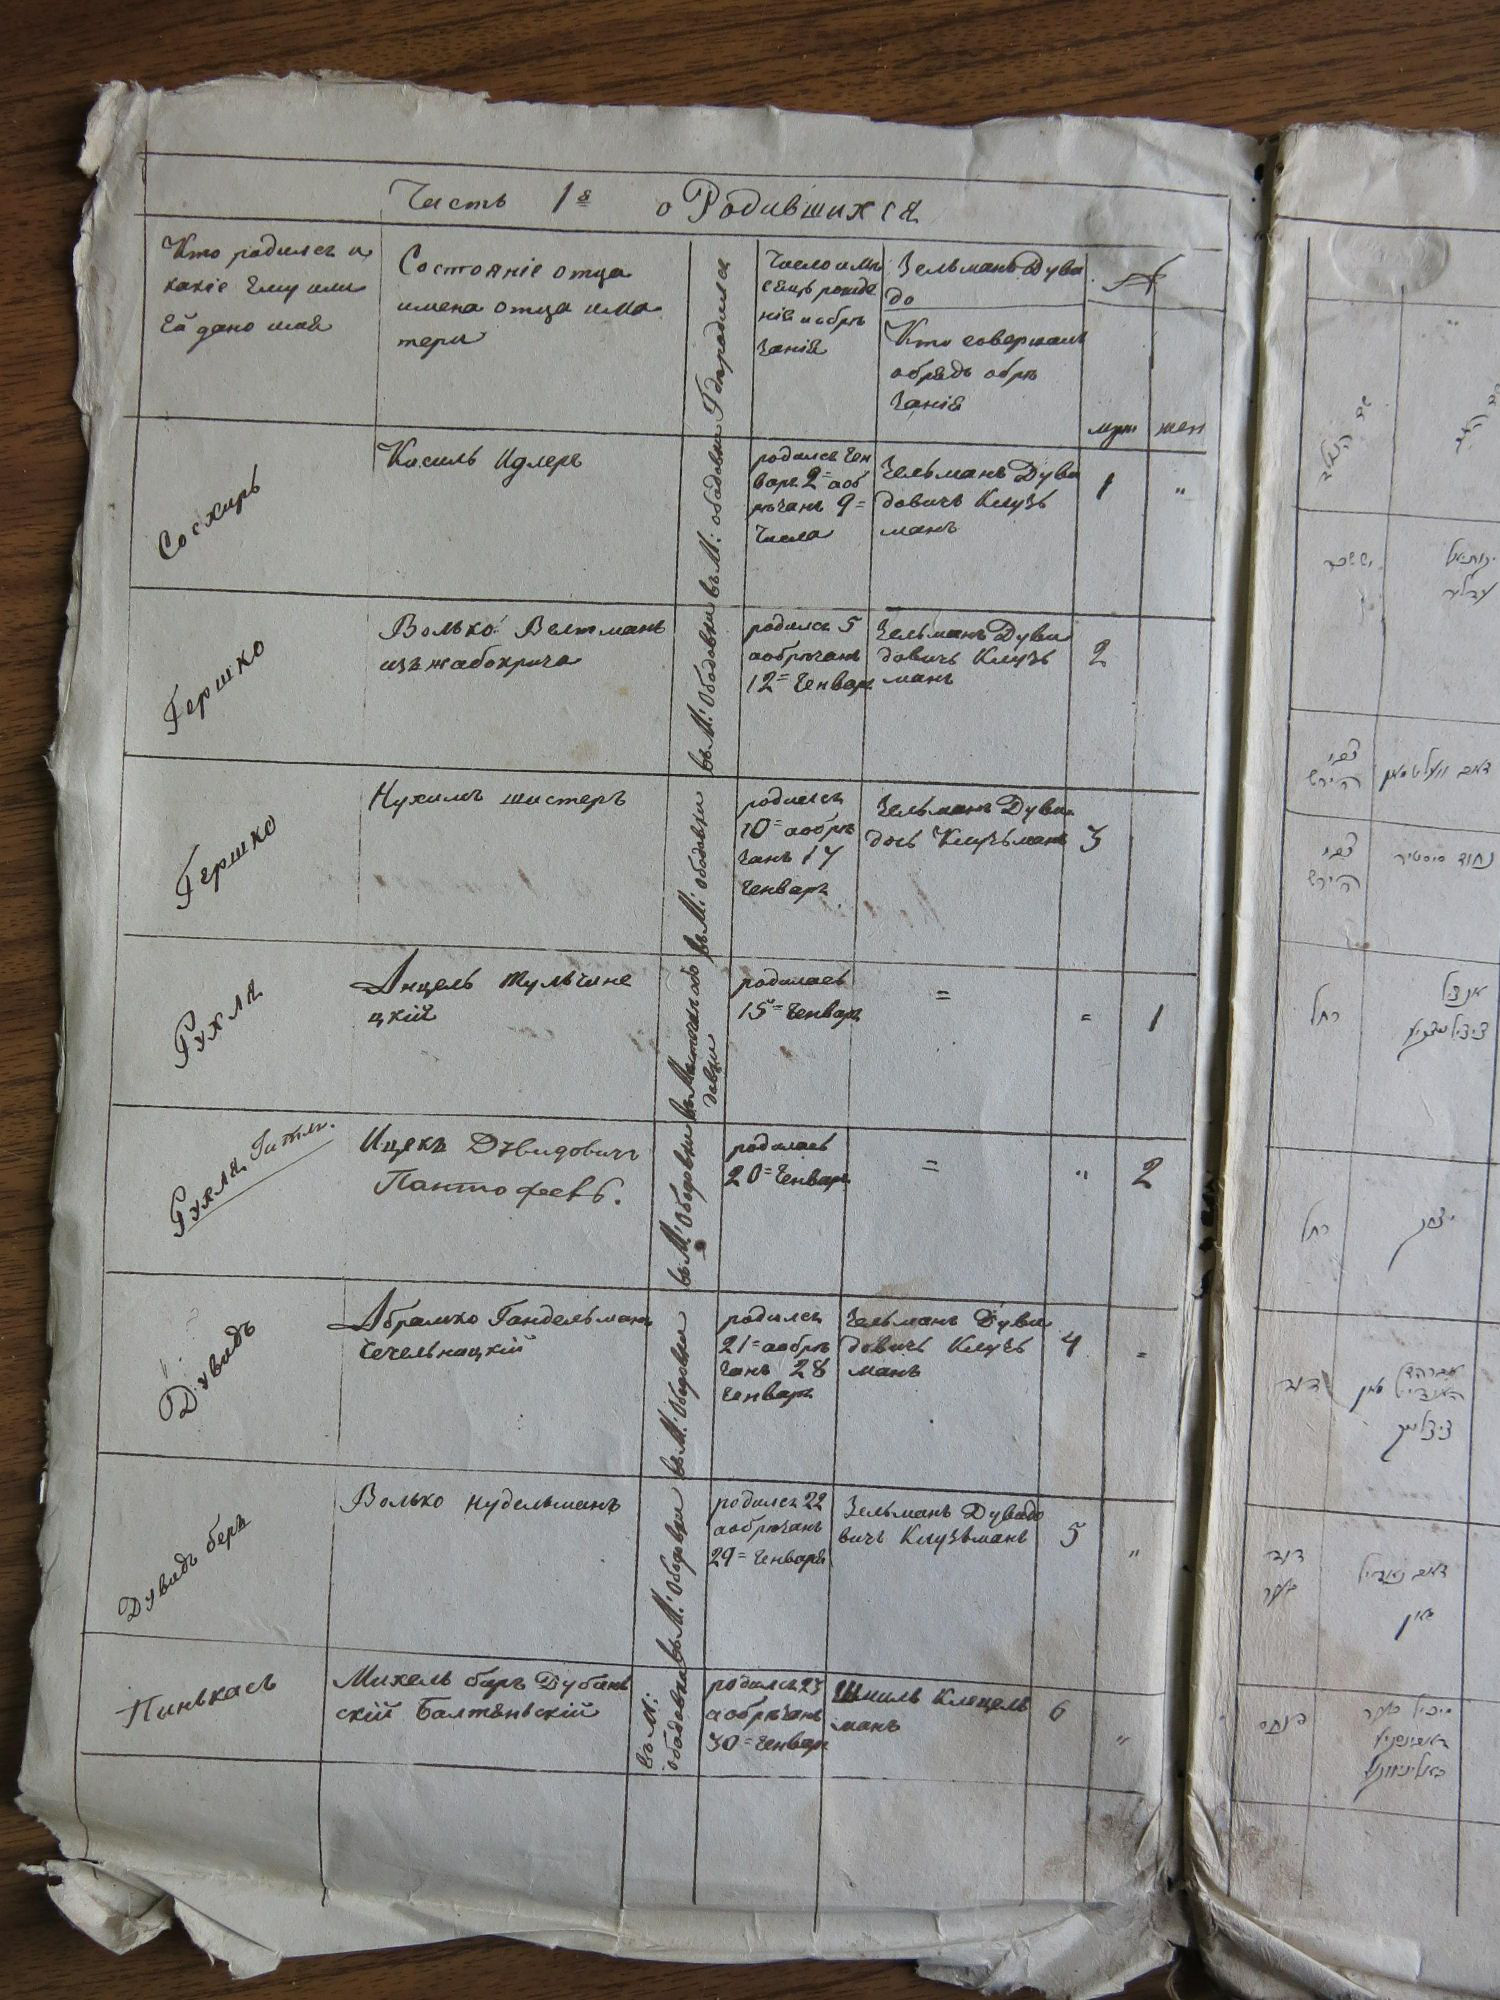 Часть 1я о Родившихся
Кто родилсъ и
какіе Ему или
Ей дано имя
Состояніе отца
имена отца и ма
тери
Где родился
Число и мѣ
сяцъ рожде
нія и обрѣ
занія
Зельманъ Дуви
до
Кто совершалъ
обрядъ обрѣ
занія
№
муж
жен
Сосхиръ
Касиль Идлеръ
въ М: ободовки
родилсъ Ген
варъ 2 = а об
рѣзанъ 9 =
Числа
Зельманъ Дуви
довичъ Клузъ
манъ
1
"
Гершко
Волько Велтманъ
изъ жабокрича
въ М: Ободовки
родилсъ 5
а обрѣзанъ
12 = Генвар
Зельманъ Дуви
довичъ Клузъ
манъ
2
Гершко
Нухимъ шистеръ
въ М: ободовки
родилсъ
10 = а обрѣ
занъ 17
Генваръ
Зельманъ Дуви
дов Клузьманъ
3
Рухля
Анцель Тульчине
цкій
въ Мѣстечкѣ обо
довки
родилась
15 = Генвар
=
=
1
Рухля Гитля.
Ицекъ Дувидовичъ
Пантофеевъ.
въ М: Ободовки
родилась
20 = Генвар
=
"
2
Дувидъ
Абрамко Гандельманъ
Чечельницкій
въ М: Ободовки
родилсъ
21 = а обрѣ
занъ 28
Генваръ
Зельманъ Дуви
довичъ Клузъ
манъ
4
=
Дувидъ беръ
Волько нудельманъ
въ М: Ободовки
родилсъ 22
а обрѣзанъ
29 = Генваря
Зельманъ Дувидо
вичъ Клузьманъ
5
"
Пинькасъ
Михель беръ Дубинь
скій Балтяньскій
въ М:
ободовка
родилсъ 23
а обрѣзанъ
30 = Генвар
Шмиль Клецель
манъ
6
"
יששכר
יקותיאל
אדליר
צבי
הירש
צבי
הירש
נחום סיסטיר
רחל
אנציל
רחל
יצחק
דוד
אברהם
דוד
בער
פנחס
מיכל בער